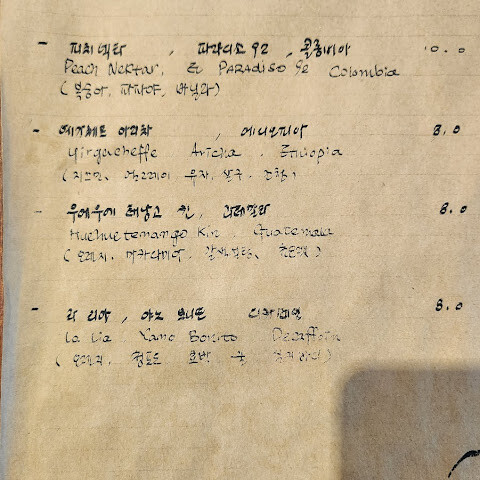 - 피치 넥타, 파라디소 92, 콜롬비아 10.0
Peach Nektar, El PARADISO 92 Colombia
(복숭아, 파파야, 바닐라)
- 예가체프 아리차, 에티오피아 8.0
Yirgacheffe Aricha, Ethiopia
(자스민, 유자, 살구,
- 우에우에테낭고 킨, 과테말라 8.0
Huehuetenango Kin, Guatemala
(오렌지, 마카다미아,
- 라 리아, 야노 보니또 디카페인 8.0
La Lia Yano Bonito Decaffein
(오렌지, 청포도